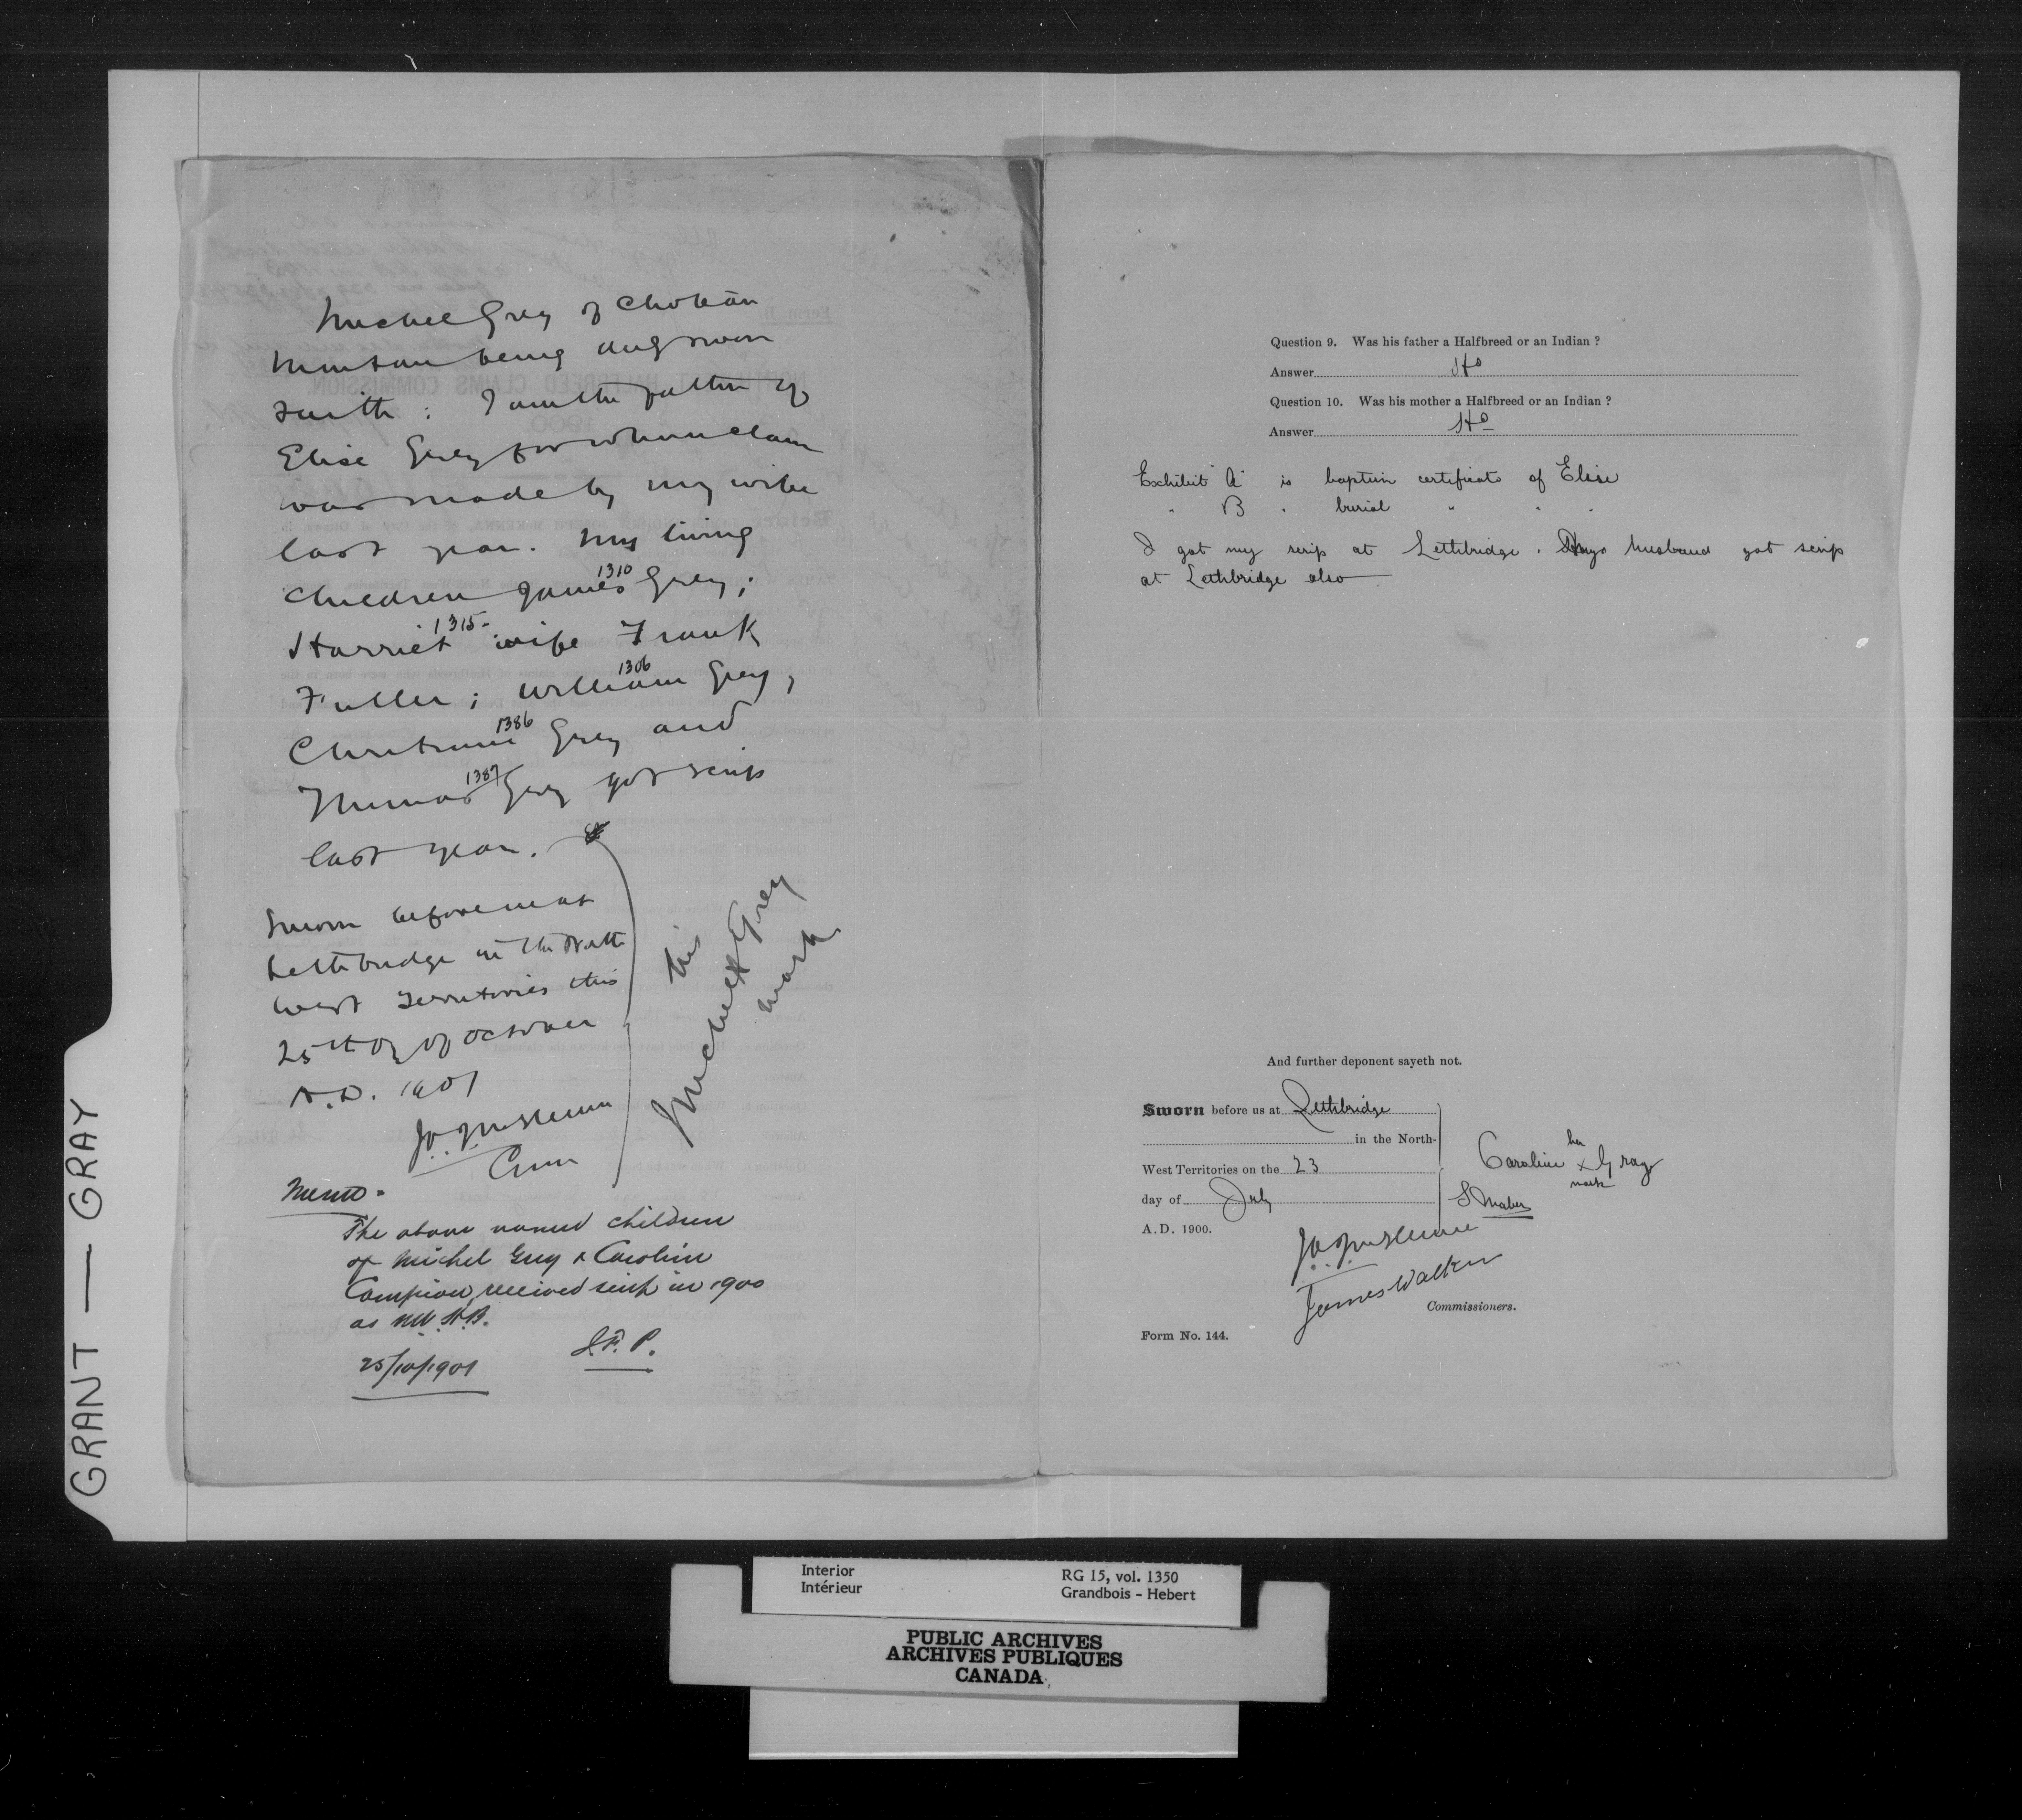 Michel Grey of Choteau
Montana being duly sworn
saith : I am the father of
Elise Grey for whom claim
was made by my wife
last year. My living
1310
children James Grey ;
1315-
Harriet wife Frank
1306
Fuller ; William Grey ,
1386
Christine Grey and
1387
Thomas Grey got scrip
last year.
Sworn before me at
Lethbridge in the North
West Territories this
25th day of October
A.D. 1901
J. A. J. McKenna
Com
his
Michel X Grey
mark
Memo -
The above named children
of Michel Grey & Caroline
Campion received scrip in 1900
as N.W. H.B.
25/10/1901
J.F.P.
Question 9. Was his father a Halfbreed or an Indian ?
Answer HB
Question 10. Was his mother a Halfbreed or an Indian ?
Answer HB
Exhibit "A" is baptism certificate of Elise
" B " burial " " "
I got my scrip at Lethbridge. My husband got scrip
at Lethbridge also
And further deponent sayeth not.
Sworn before us at Lethbridge
in the North-
West Territories on the 23
day of July
A.D. 1900.
her
Caroline x Gray
mark
S Maber
J. A. J. McKenna
James Walker
Commissioners.
Form No. 144.
GRANT — GRAY
Interior
Intérieur
RG 15, vol. 1350
Grandbois - Hebert
PUBLIC ARCHIVES
ARCHIVES PUBLIQUES
CANADA